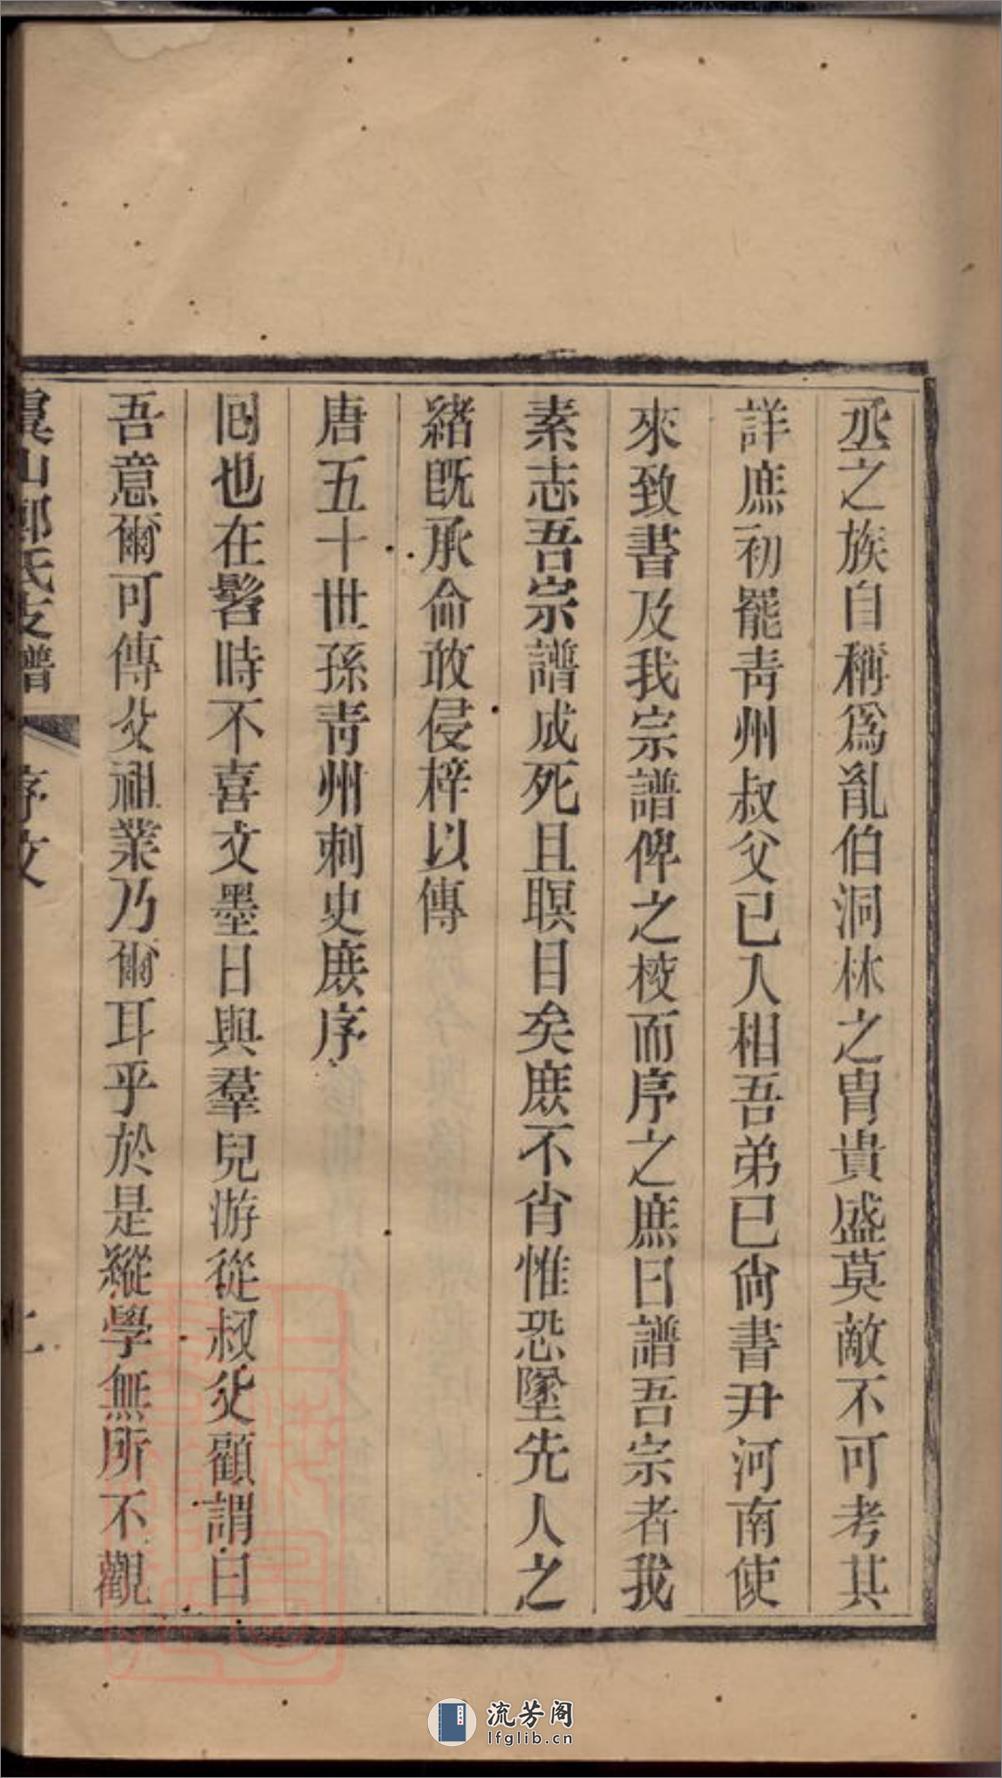 丞之族自稱爲胤伯洞林之胄貴盛莫敵不可考其
詳庶初罷靑州叔父已入相吾弟已尙書尹河南使
來致書及我宗譜俾之校而序之庶曰譜吾宗者我
素志吾宗譜成死且瞑目矣庶不肖惟恐墜先人之
緖旣承命敢侵梓以傳
唐五十世孫靑州刺史庶序
囘也在髫時不喜文墨日與羣兒游從叔父顧謂曰
吾意爾可傳父祖業乃爾耳乎於是縱學無所不觀
虞山郭氏支譜 序文 七
流芳阁
lfglib.cn